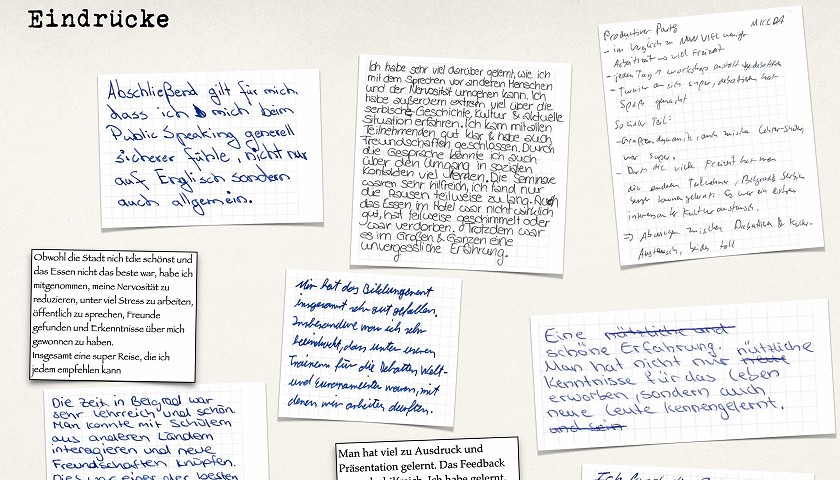 Eindrücke
Abschließend gilt für mich,
dass ich mich beim
Public Speaking generell
sicherer fühle, nicht nur
auf Englisch sondern
auch allgemein.
Ich habe sehr viel darüber gelernt, wie ich
mit dem Sprechen vor anderen Menschen
und der Nervosität umgehen kann. Ich
habe außerdem extrem viel über die
serbische Geschichte, Kultur & aktuelle
Situation erfahren. Ich kam mit allen
Teilnehmenden gut klar & habe auch
Freundschaften geschlossen. Durch
die Gespräche konnte ich auch
über den Umgang in sozialen
Kontakten viel lernen. Die Seminare
waren sehr hilfreich, ich fand nur
die Pausen teilweise zu lang. Auch
das Essen im Hotel war nicht wirklich
gut, hat teilweise geschimmelt oder
war verdorben. Trotzdem war
es im Großen & Ganzen eine
unvergessliche Erfahrung.
Productiver Part
- im Vergleich zu MUN VIEL weniger
Arbeitszeit viel Freizeit
- jeden Tag 1 Workshop anstatt
- Turnier an sich super, debattieren hat
Spaß gemacht
Sozialer Teil:
- Gruppendynamik, auch zwischen
war super.
- Durch die viele Freizeit hat man
die anderen Teilnehmer, Belgrad & Serbien
kennengelernt. Es war ein
interessanter Kulturaustausch.
=> Abwägen zwischen Debattieren & Kultur-
Austausch, beides toll
Obwohl die Stadt nich tdie schönst und
das Essen nicht das beste war, habe ich
mitgenommen, meine Nervosität zu
reduzieren, unter viel Stress zu arbeiten,
öffentlich zu sprechen, Freunde
gefunden und Erkenntnisse über mich
gewonnen zu haben.
Insgesamt eine super Reise, die ich
jedem empfehlen kann
Mir hat das Bildungsevent
insgesamt sehr gut gefallen.
Insbesondere war ich sehr
beeindruckt, dass unter unseren
Trainern für die Debatten Welt-
und Europameister waren, mit
denen wir arbeiten durften.
Eine nützliche und
schöne Erfahrung. nützliche
Man hat nicht nur neue
Kenntnisse für das Leben
erworben, sondern auch
neue Leute kennengelernt.
und sein
Die Zeit in Belgrad war
sehr lehrreich und schön.
Man konnte mit Schülern
aus anderen Ländern
interagieren und neue
Freundschaften knüpfen.
Dies war einer der besten
Man hat viel zu Ausdruck und
Präsentation gelernt. Das Feedback
Ich habe gelernt,